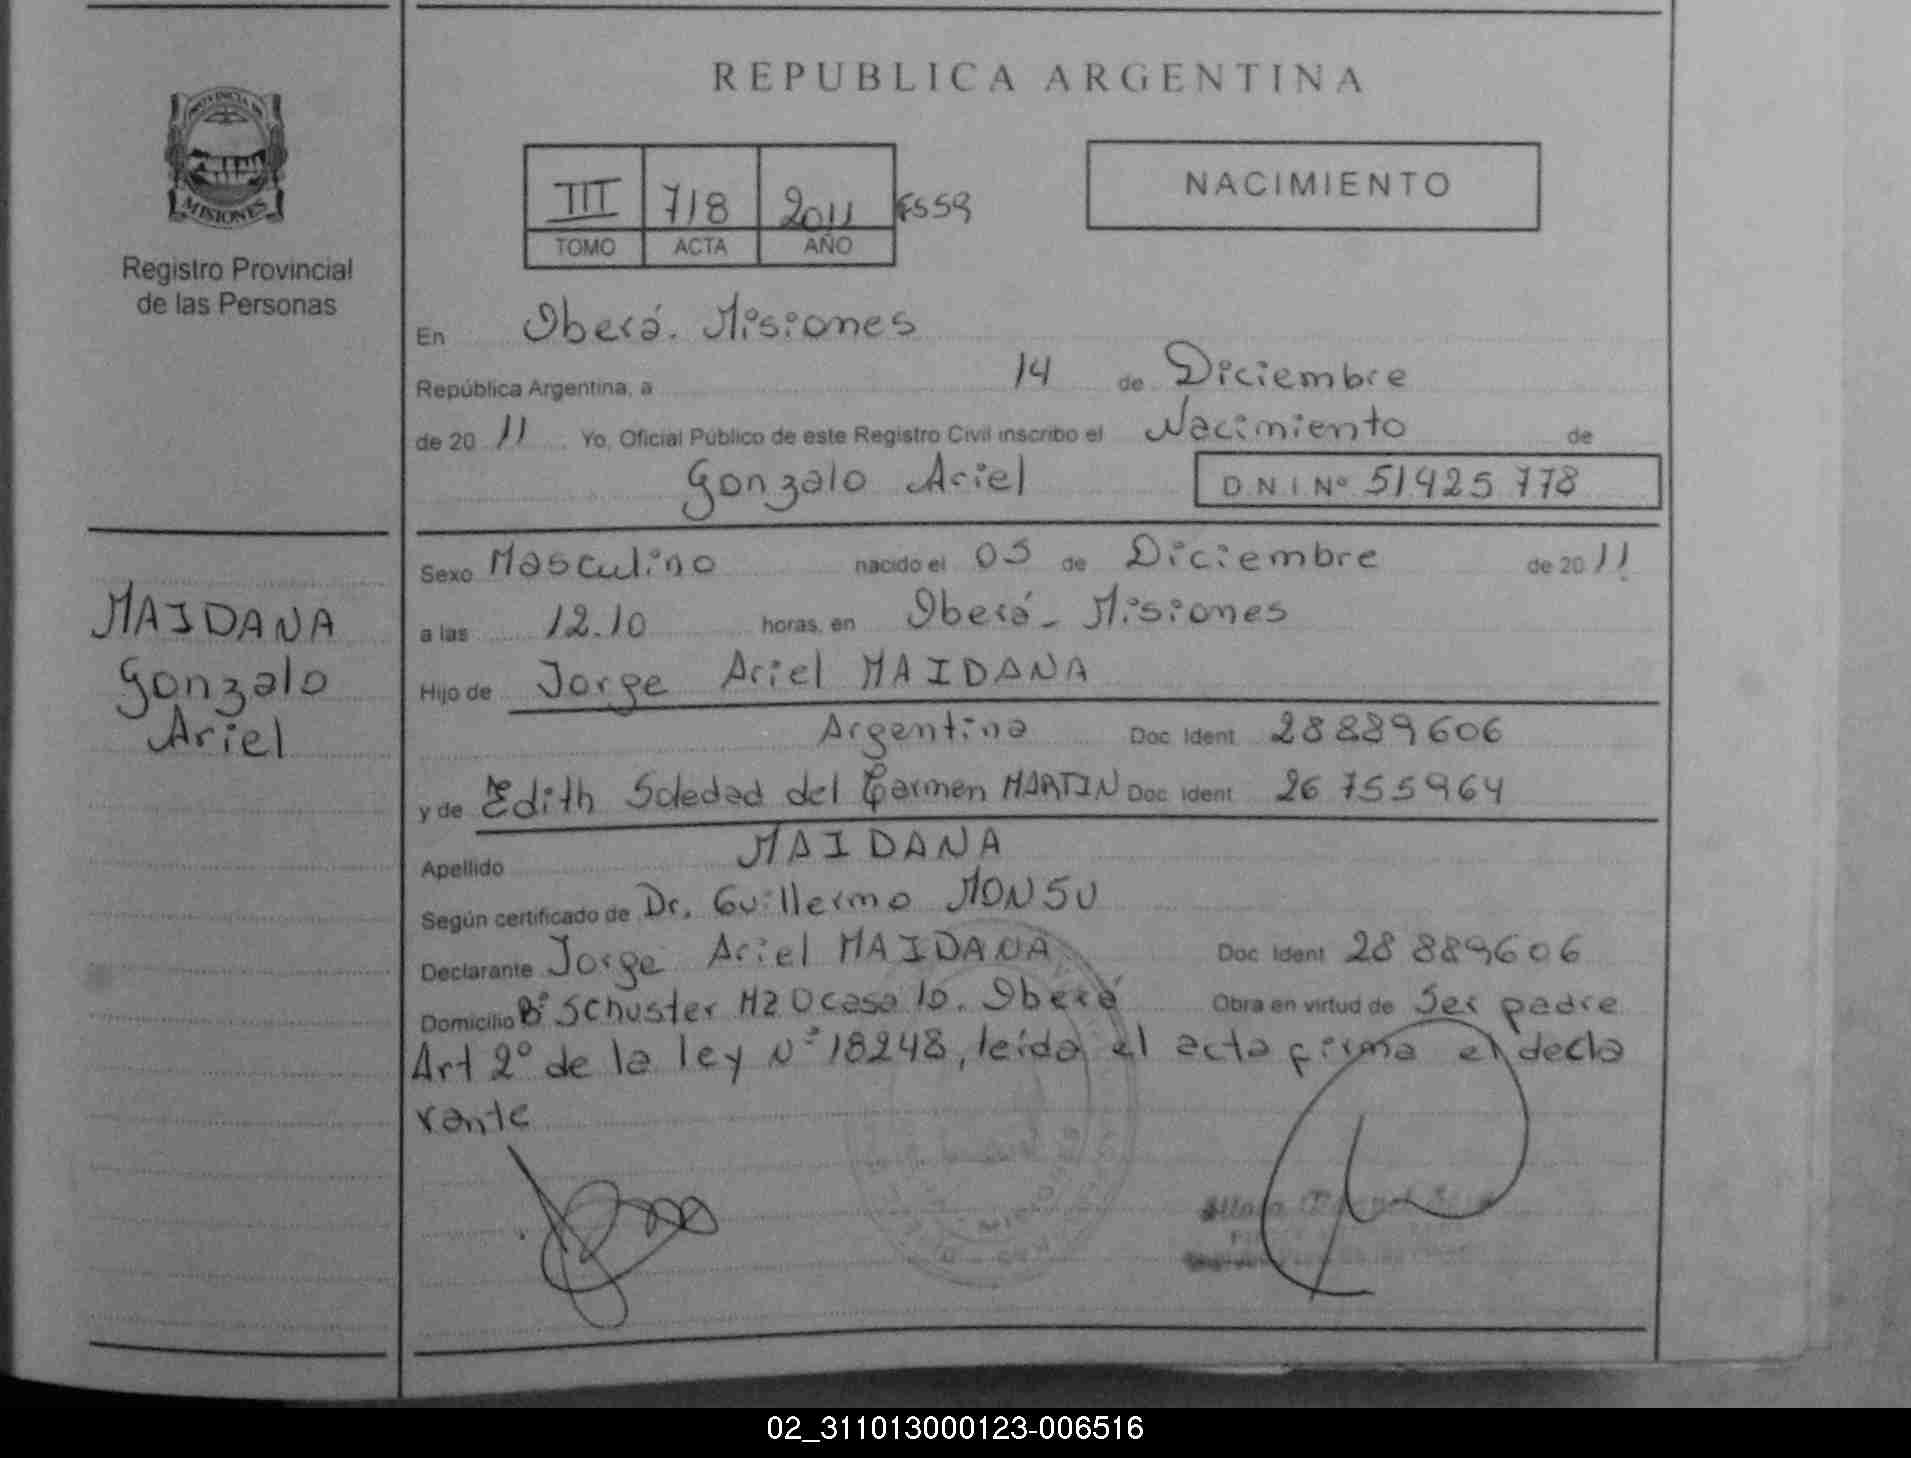 REPUBLICA ARGENTINA
PROVINCIA DE
MISIONES
Registro Provincial
de las Personas
NACIMIENTO
III 718 2011 F559
TOMO ACTA AÑO
En Oberá. Misiones
República Argentina, a 14 de Diciembre
de 20 11 Yo, Oficial Público de este Registro Civil inscribo el Nacimiento de
Gonzalo Ariel D N I Nº 51425778
Sexo Masculino nacido el 05 de Diciembre de 20 11
MAIDANA
Gonzalo
Ariel
a las 12.10 horas, en Oberá - Misiones
Hijo de Jorge Ariel MAIDANA
Argentina Doc Ident 28889606
y de Edith Soledad del Carmen MARTIN Doc Ident 26755964
Apellido MAIDANA
Según certificado de Dr. Guillermo MONSU
Declarante Jorge Ariel MAIDANA Doc Ident 28889606
Domicilio Bº Schuster Mz O casa 10. Oberá Obra en virtud de Ser padre
Art 2º de la ley Nº 18248, leída el acta firma el decla
rante
02_311013000123-006516